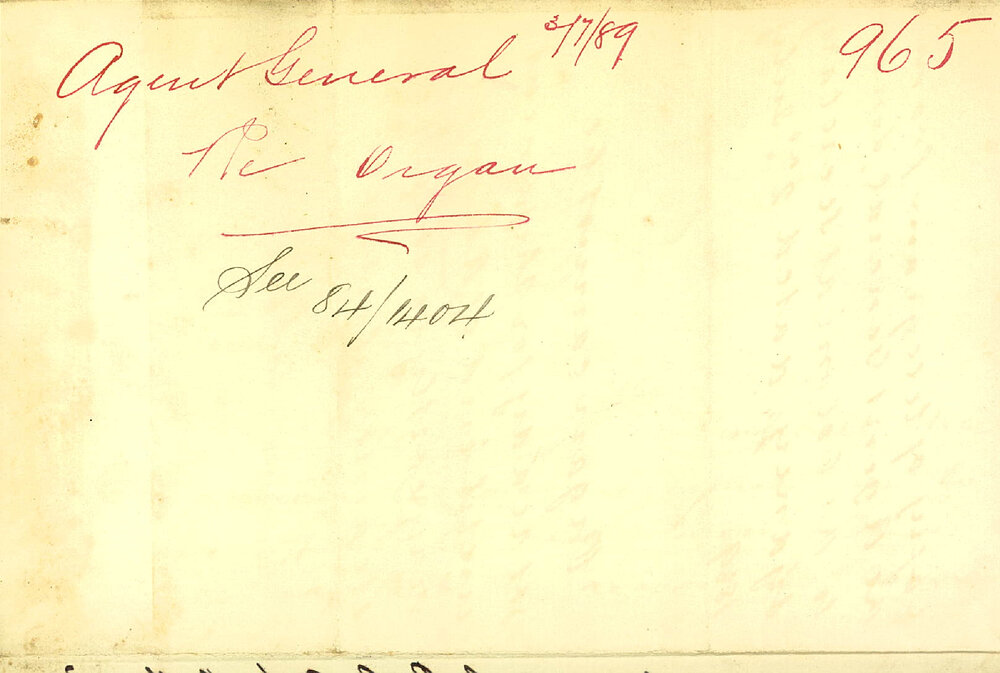 Agent General 3/7/89 965
Re Organ
See 84/1404